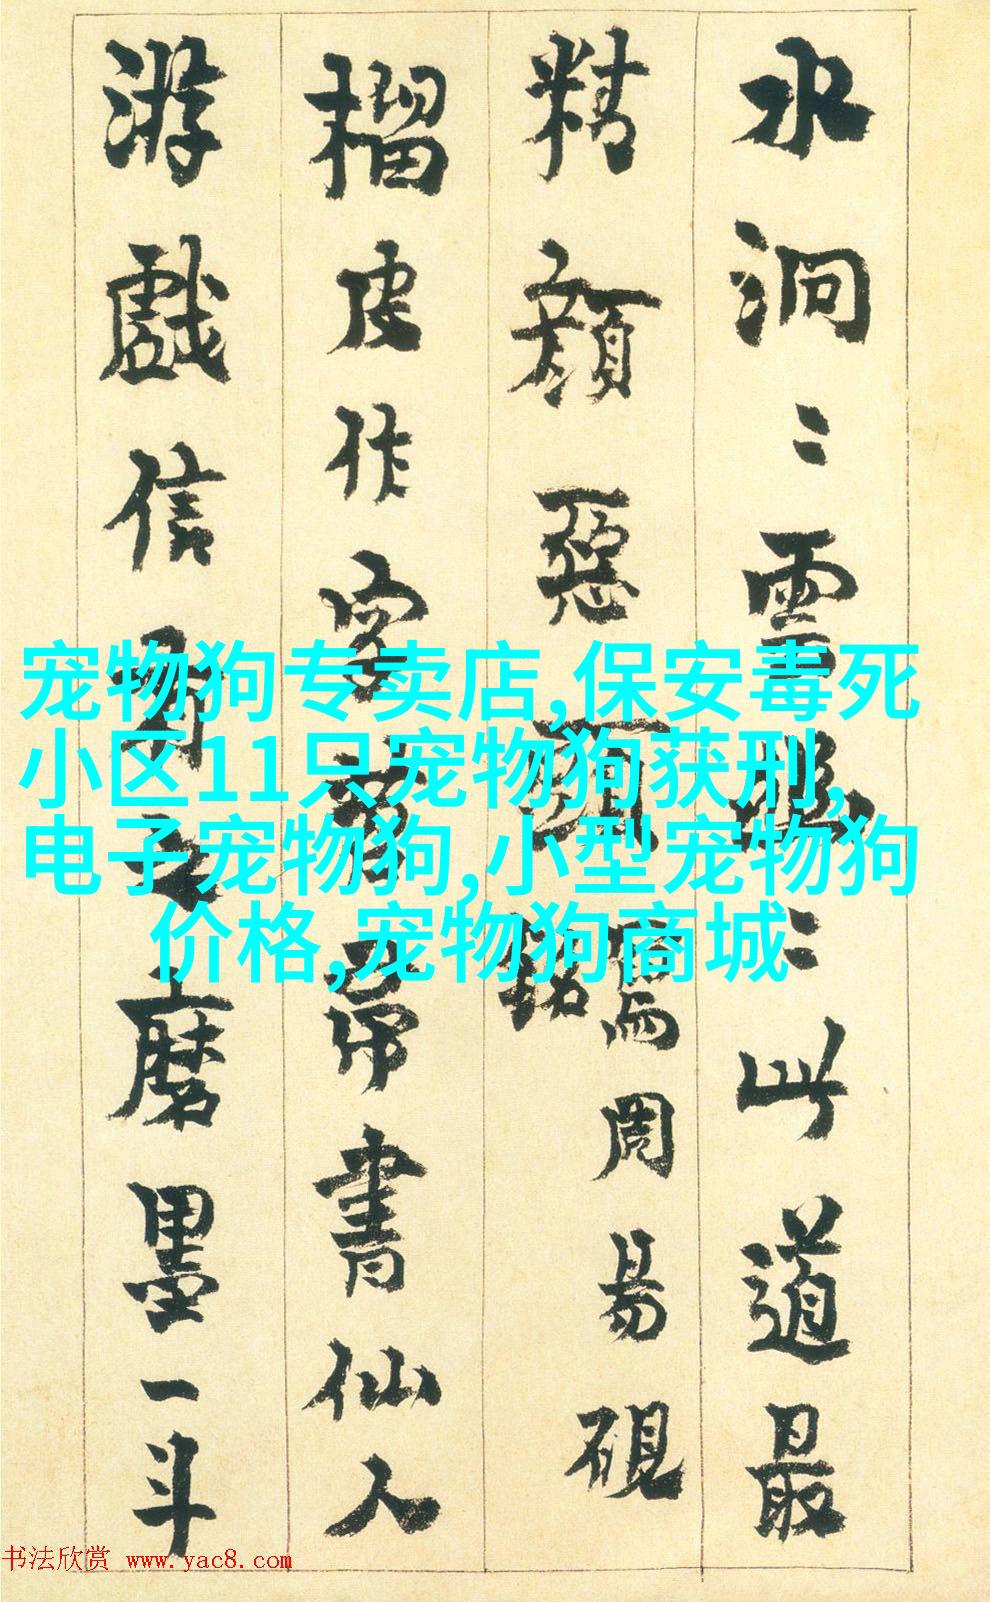 水洞〻雲
〻此道最
精顏惡
銘
寫周易硯
榴皮作字
帚書仙人
游戲信
之磨墨一斗
宠物狗专卖店,保安毒死
小区11只宠物狗获刑,
电子宠物狗,小型宠物狗
价格,宠物狗商城
书法欣赏 www.yac8.com